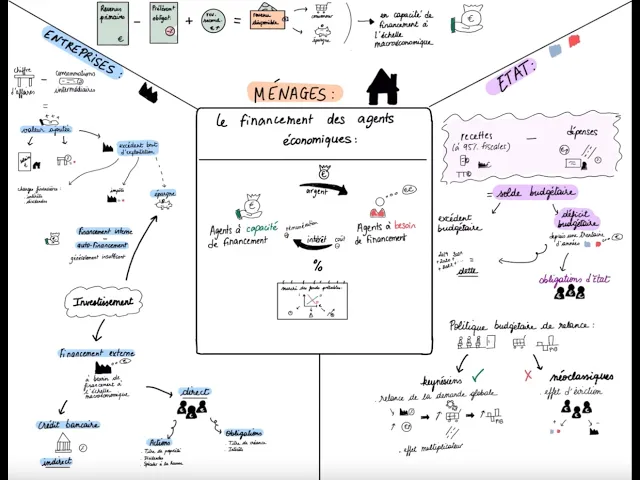 Revenus primaire
€
−
Prélèvem. obligat.
+
rev. second.
=
revenu disponible
consommer
épargne
en capacité de financement à l'échelle macroéconomique
€
MÉNAGES :
ENTREPRISES :
ETAT :
chiffre d'affaires
−
consommations intermédiaires
=
valeur ajoutée
excédent brut d'exploitation
charges financières :
intérêts
dividendes
impôts
épargne
Financement interne
=
auto-financement
généralement insuffisant
Investissement
Financement externe
à besoin de financement à l'échelle macroéconomique
Crédit bancaire
indirect
direct
Actions
• Titre de propriété
• Dividendes
Obligations
• Titre de créance
• Intérêts
Le financement des agents économiques :
€
argent
Agents à capacité de financement
Agents à besoin de financement
rémunération
intérêt
coût
%
marché des fonds prêtables
recettes
(à 95% fiscales)
−
dépenses
= solde budgétaire
excédent budgétaire
déficit budgétaire
depuis une trentaine d'années
dette
obligations d'Etat
Politique budgétaire de relance :
keynésiens
✓
• relance de la demande globale
• effet multiplicateur
X
néoclassiques
• effet d'éviction